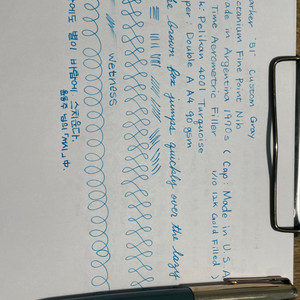 arker '51' Custom Gray
Fine Point Nib
ade in Argentina 1970s ( Cap: Made in U.S.A
Time Aerometric Filler 1/10 12K Gold Filled )
k: Pelikan 4001 Turquoise
per: Double A A4 90gsm
brown fox jumps quickly over the lazy
Wetness
에도 별이 바람에 스치운다.
윤동주 님의 「서시」 中